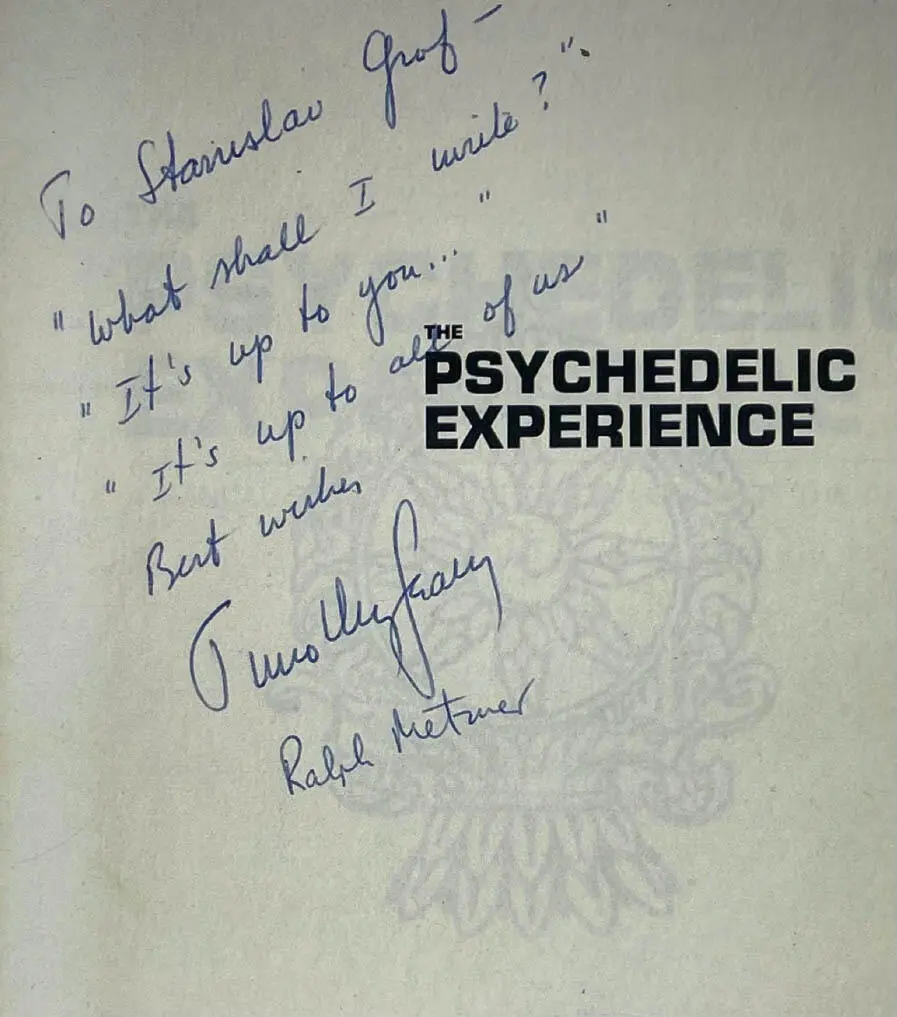 To Stanislav Grof –
"What shall I write?".
"It's up to you... "
"It's up to all of us"
THE
PSYCHEDELIC
EXPERIENCE
Best wishes
Timothy Leary
Ralph Metzner